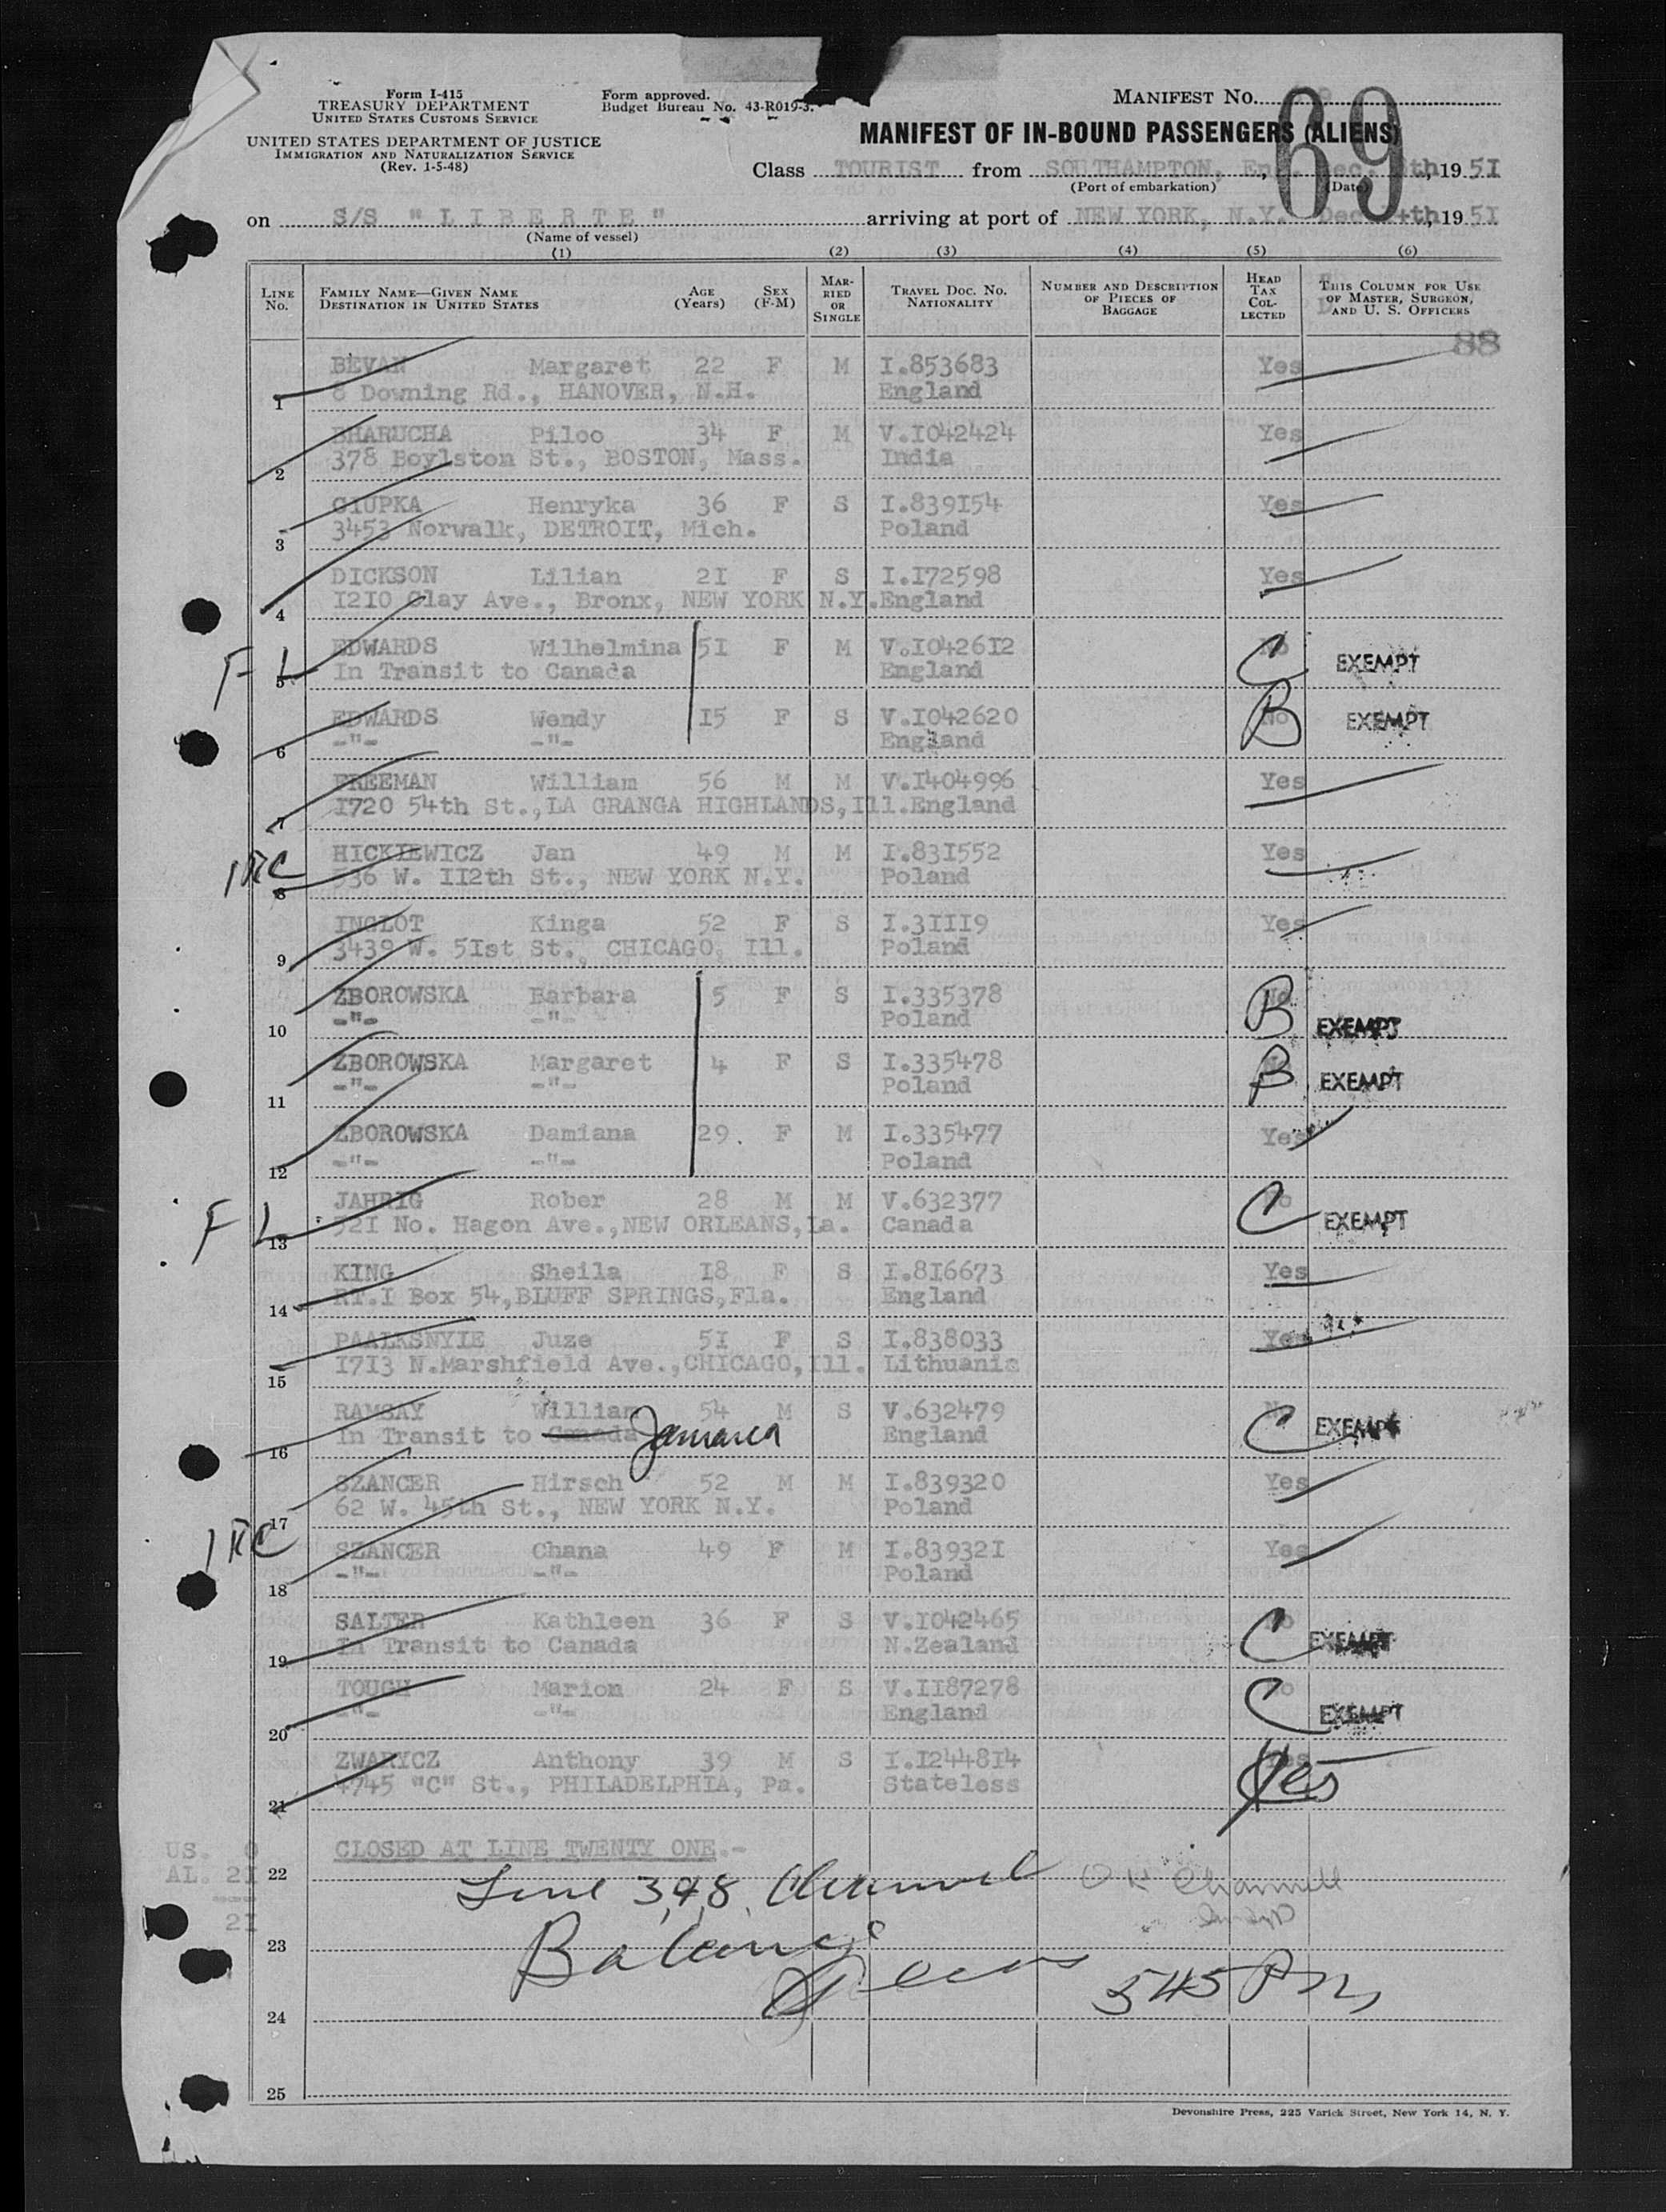 Form I-415
TREASURY DEPARTMENT
UNITED STATES CUSTOMS SERVICE
UNITED STATES DEPARTMENT OF JUSTICE
IMMIGRATION AND NATURALIZATION SERVICE
(Rev. 1-5-48)
Form approved.
Budget Bureau No. 43-R019-3.
MANIFEST NO.
69
MANIFEST OF IN-BOUND PASSENGERS (ALIENS)
Class TOURIST from SOUTHAMPTON, Eng. Dec. th, 1951
(Port of embarkation) (Date)
on S/S "LIBERTE" arriving at port of NEW YORK, N.Y. Dec th 1951
(Name of vessel)
(1) (2) (3) (4) (5) (6)
LINE NO. FAMILY NAME—GIVEN NAME DESTINATION IN UNITED STATES AGE (Years) SEX (F-M) MARRIED OR SINGLE TRAVEL DOC. NO. NATIONALITY NUMBER AND DESCRIPTION OF PIECES OF BAGGAGE HEAD TAX COLLECTED THIS COLUMN FOR USE OF MASTER, SURGEON, AND U. S. OFFICERS
88
BEVAN Margaret 22 F M I.853683 Yes
1 8 Downing Rd., HANOVER, N.H. England
BHARUCHA Piloo 34 F M V.I042424 Yes
2 378 Boylston St., BOSTON, Mass. India
GIUPKA Henryka 36 F S I.839I54 Yes
3 3453 Norwalk, DETROIT, Mich. Poland
DICKSON Lilian 2I F S I.I72598 Yes
4 I2I0 Clay Ave., Bronx, NEW YORK N.Y. England
F L EDWARDS Wilhelmina 5I F M V.I0426I2 No C EXEMPT
5 In Transit to Canada England
EDWARDS Wendy I5 F S V.I042620 No B EXEMPT
6 -"- -"- England
FREEMAN William 56 M M V.I404996 Yes
7 I720 54th St.,LA GRANGA HIGHLANDS,Ill. England
IRC HICKIEWICZ Jan 49 M M I.83I552 Yes
8 536 W. II2th St., NEW YORK N.Y. Poland
INGLOT Kinga 52 F S I.3III9 Yes
9 3439 W. 5Ist St., CHICAGO, Ill. Poland
ZBOROWSKA Barbara 5 F S I.335378 No B EXEMPT
10 -"- -"- Poland
ZBOROWSKA Margaret 4 F S I.335478 B EXEMPT
11 -"- -"- Poland
ZBOROWSKA Damiana 29. F M I.335477 Yes
12 -"- -"- Poland
F L JAHRIG Rober 28 M M V.632377 No C EXEMPT
13 52I No. Hagon Ave.,NEW ORLEANS,La. Canada
KING Sheila I8 F S I.8I6673 Yes
14 RT.I Box 54,BLUFF SPRINGS,Fla. England
PAALKSNYIE Juze 5I F S I.838033 Yes
15 I7I3 N.Marshfield Ave.,CHICAGO,Ill. Lithuania
RAMSAY William 54 M S V.632479 C EXEMPT
16 In Transit to Canada Jamaica England
SZANCER Hirsch 52 M M I.839320 Yes
17 62 W. 45th St., NEW YORK N.Y. Poland
IRC SZANCER Chana 49 F M I.83932I Yes
18 -"- -"- Poland
SALTER Kathleen 36 F S V.I042465 No C EXEMPT
19 In Transit to Canada N.Zealand
TOUGH Marion 24 F S V.II87278 No C EXEMPT
20 -"- -"- England
ZWARYCZ Anthony 39 M S I.I2448I4 Yes Yes
21 4745 "C" St., PHILADELPHIA, Pa. Stateless
US. 0 CLOSED AT LINE TWENTY ONE.-
AL. 2I 22
---
2I
Line 3,4,8, Channel
OK Channell
23 Balance
545 PM
24
25
Devonshire Press, 225 Varick Street, New York 14, N. Y.